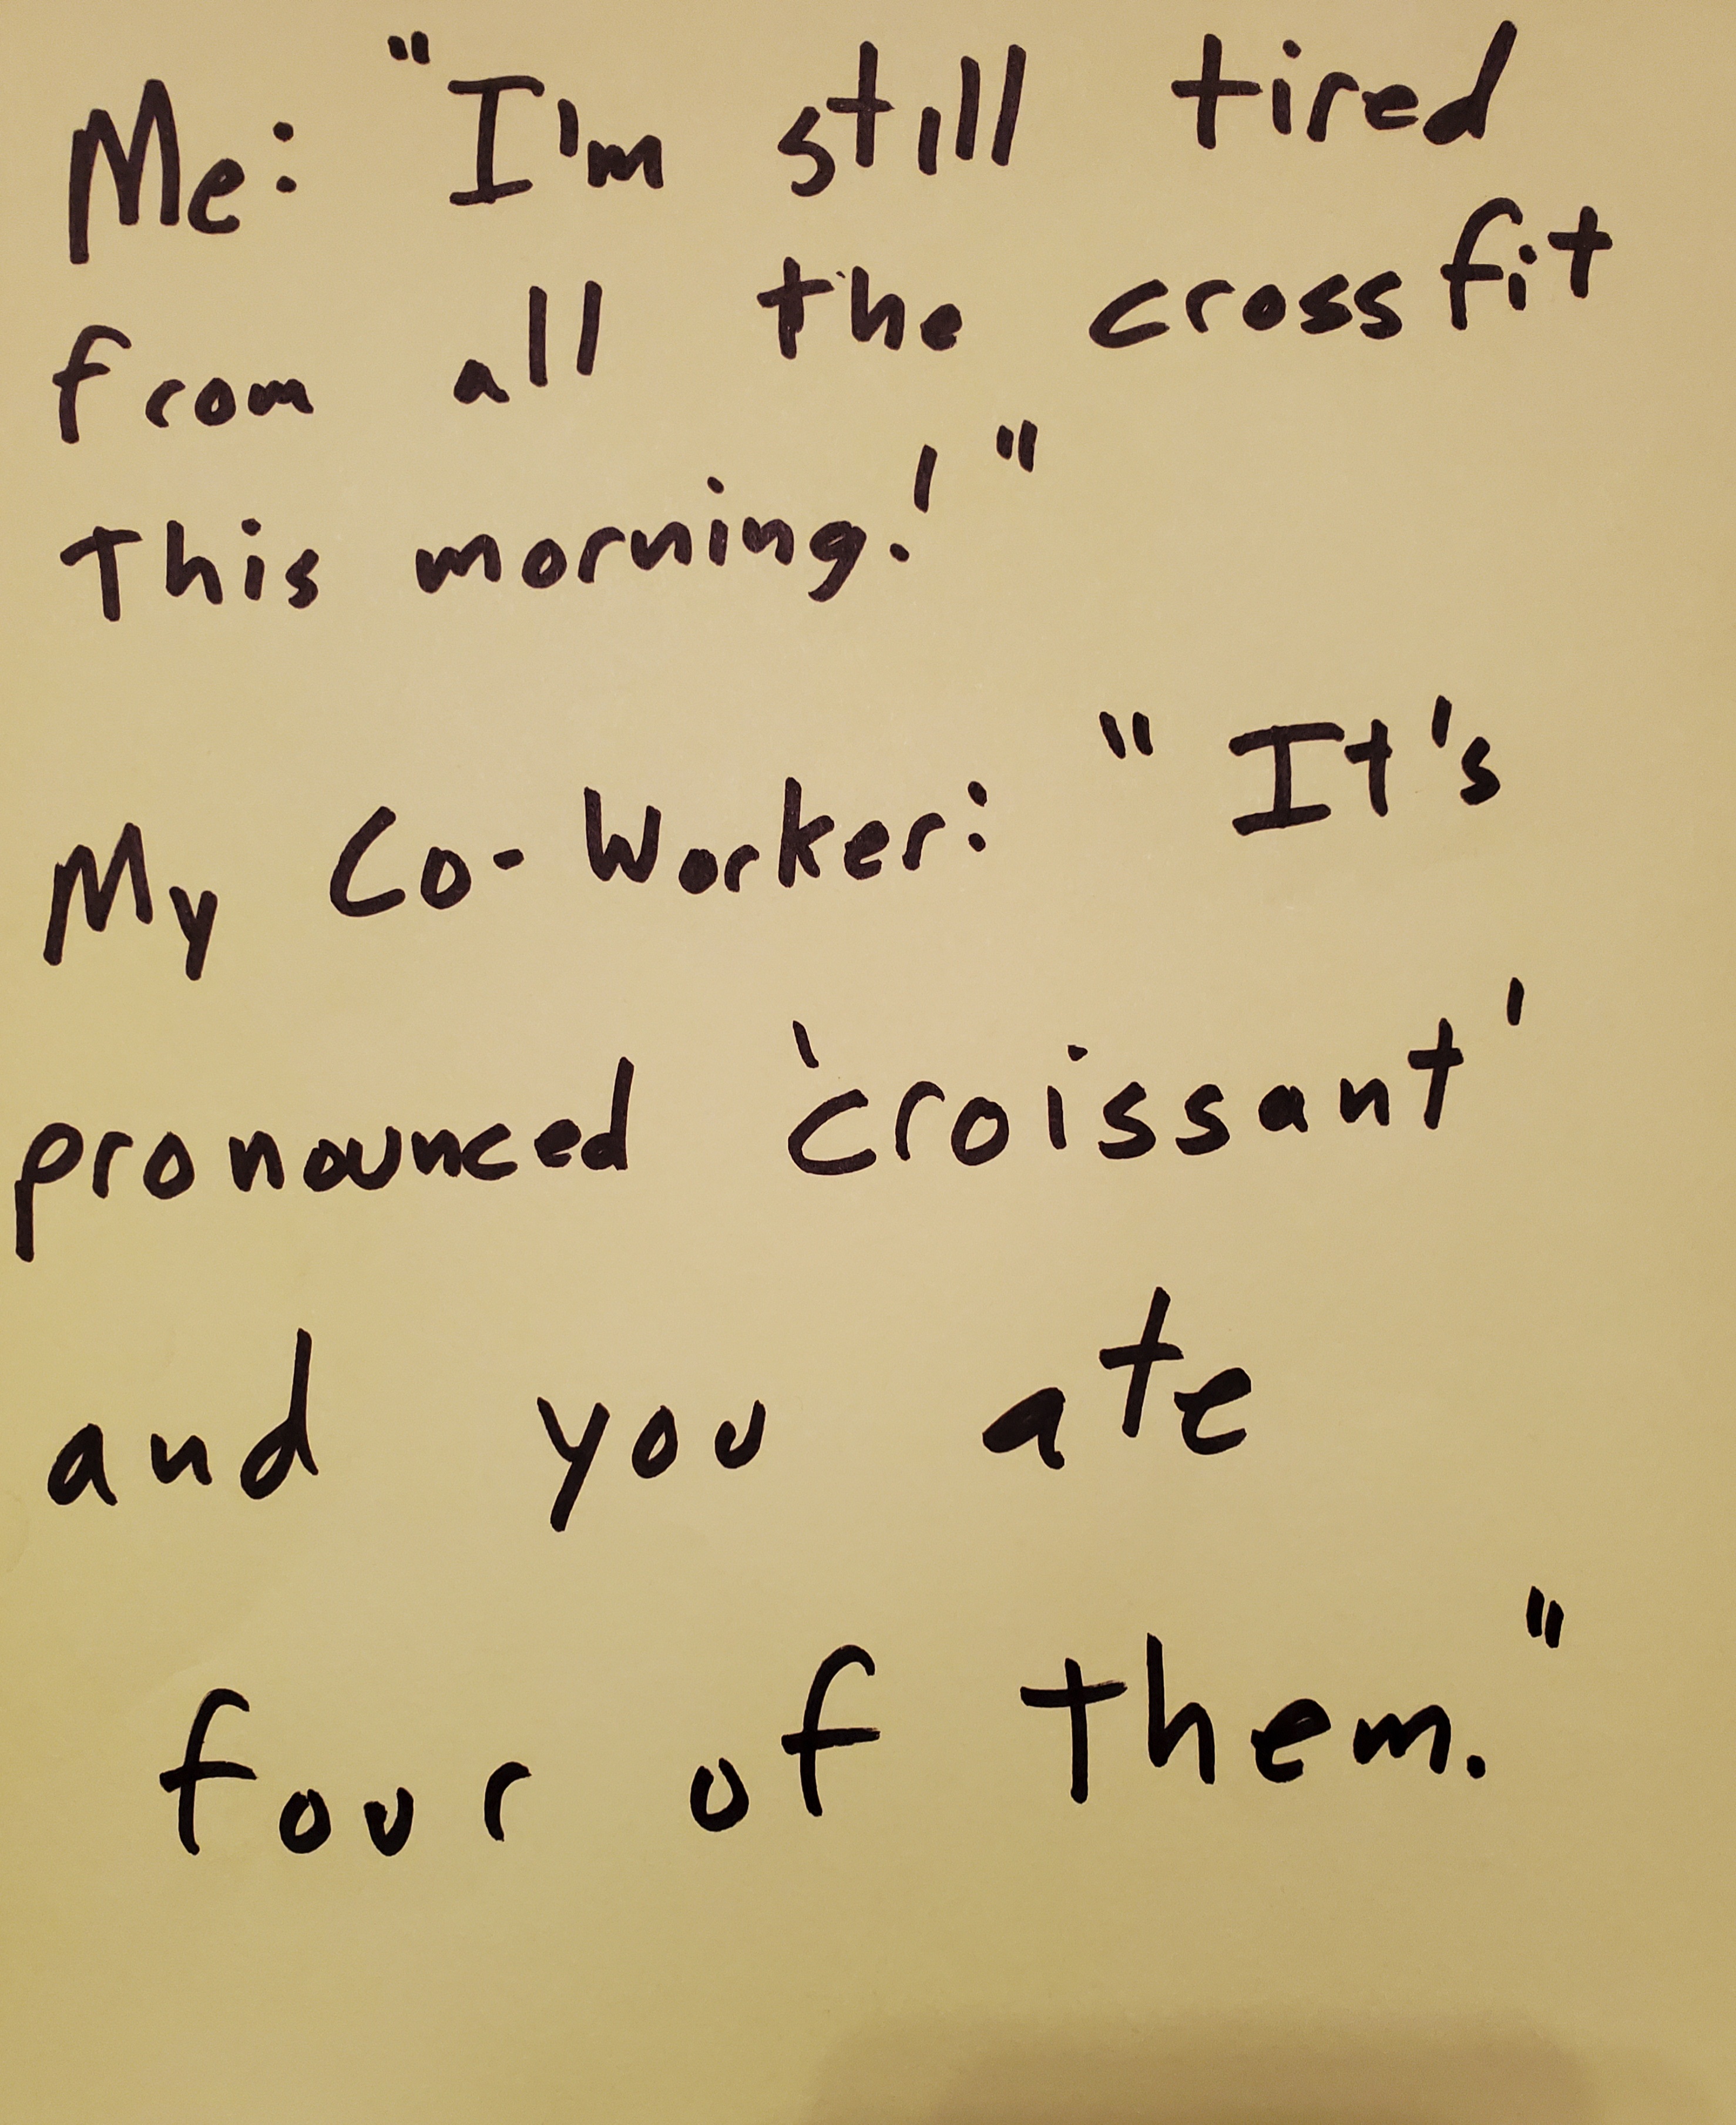 Me: "I'm still tired
from all the crossfit
This morning!"
My Co-Worker: "It's
pronounced 'croissant'
and you ate
four of them."